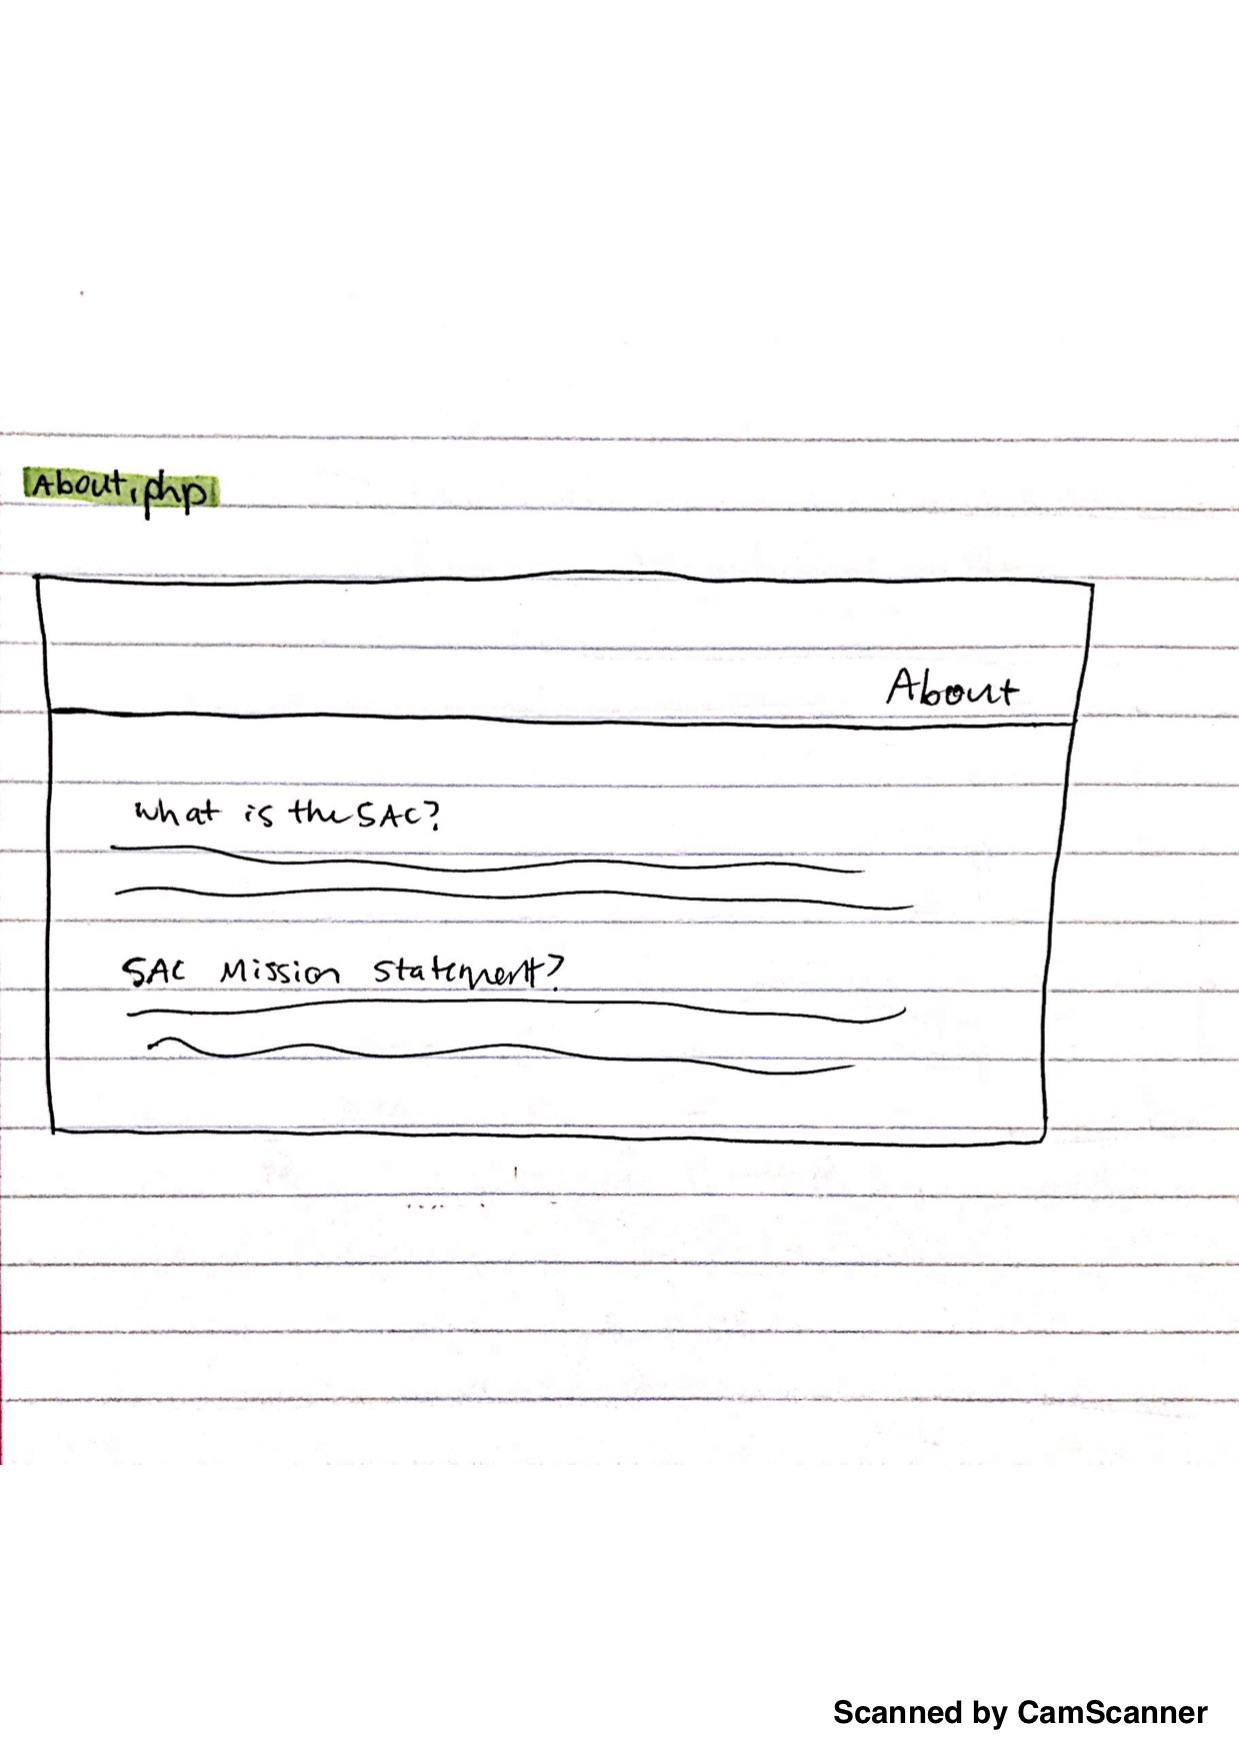 About.php
About
what is the SAC?
SAC Mission Statement?
Scanned by CamScanner